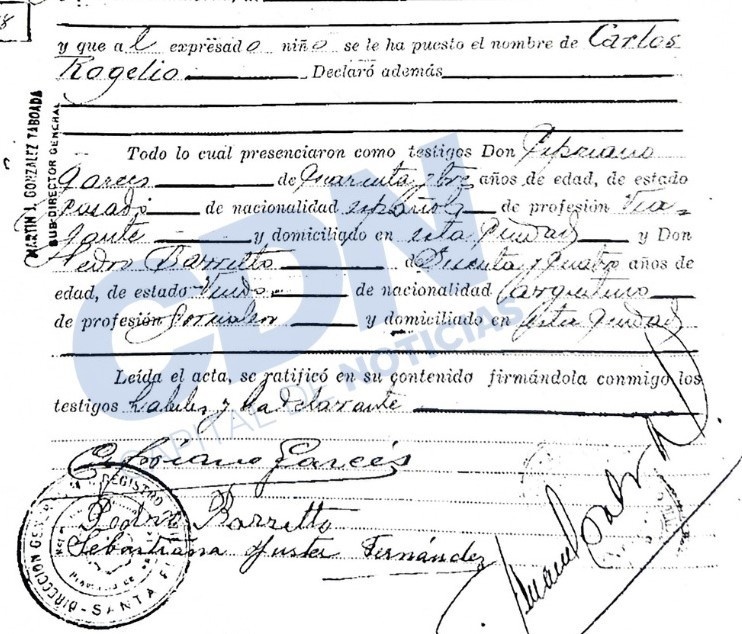 y que al expresado niño se le ha puesto el nombre de Carlos
Rogelio Declaró además
MARTIN I. GONZALEZ TABOADA
SUB-DIRECTOR GENERAL
Todo lo cual presenciaron como testigos Don Cipriano
Garcés de cuarenta y tres años de edad, de estado
casado de nacionalidad española de profesión Via-
jante y domiciliado en esta Ciudad y Don
Pedro Barretto de y cuatro años de
edad, de estado Viudo de nacionalidad argentino
de profesión Jornalero y domiciliado en esta Ciudad
Leída el acta, se ratificó en su contenido firmándola conmigo los
testigos habiles y la declarante
CDN
CAPITAL DE NOTICIAS
Cipriano Garcés
Pedro Barretto
Sebastiana Yuste Fernández
DIRECCION GENERAL REGISTRO
SANTA FE